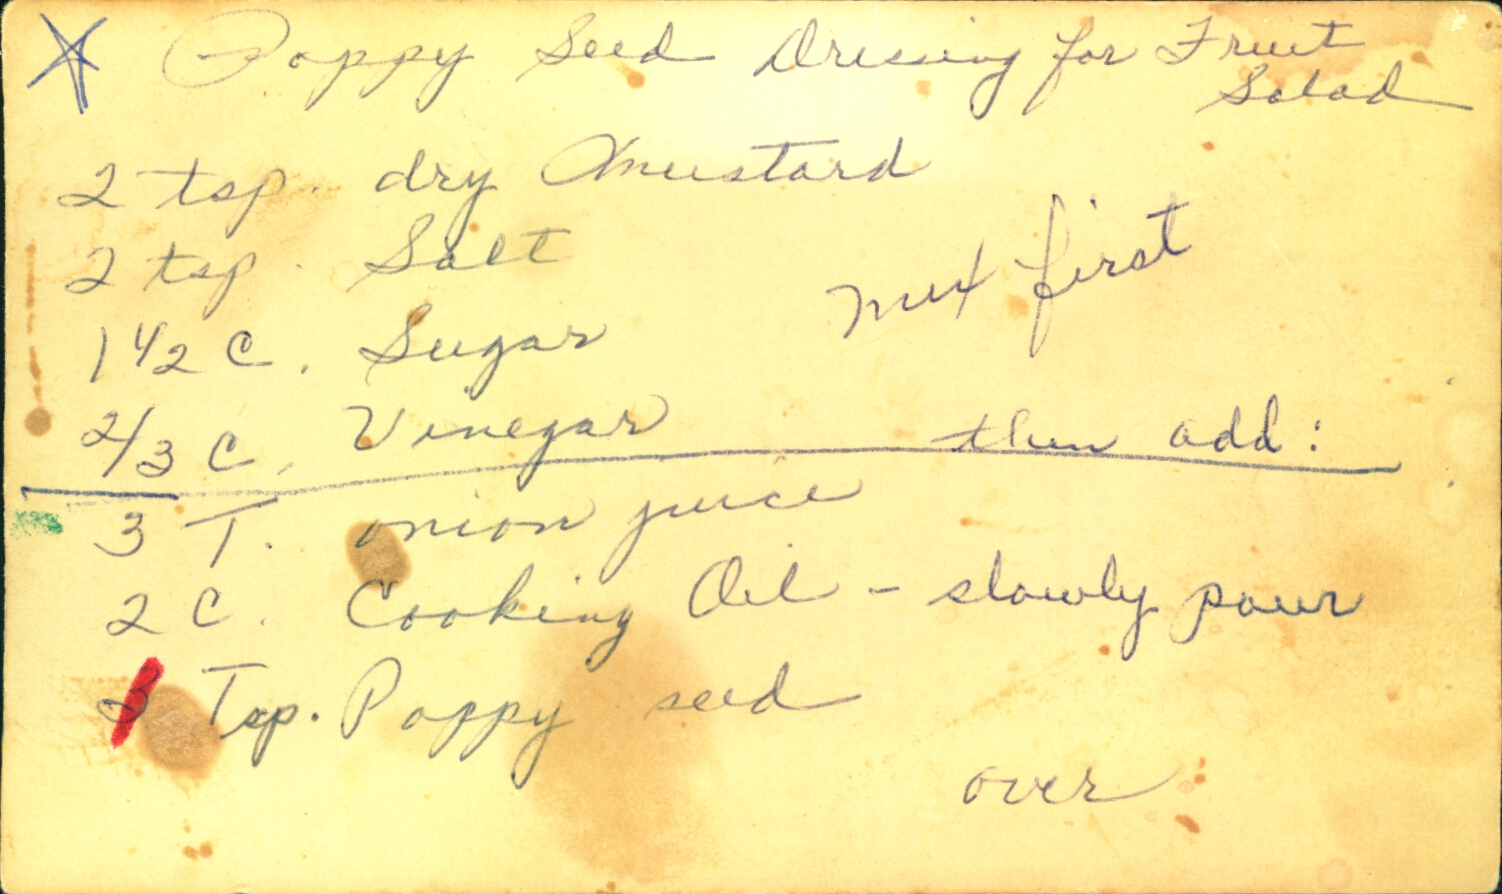 Poppy Seed Dressing for Fruit
Salad
2 tsp. dry mustard
2 tsp. Salt
mix first
1 1/2 C. Sugar
2/3 C. Vinegar then add:
3 T. onion juice
2 C. Cooking Oil - slowly pour
3 Tsp. Poppy seed
over